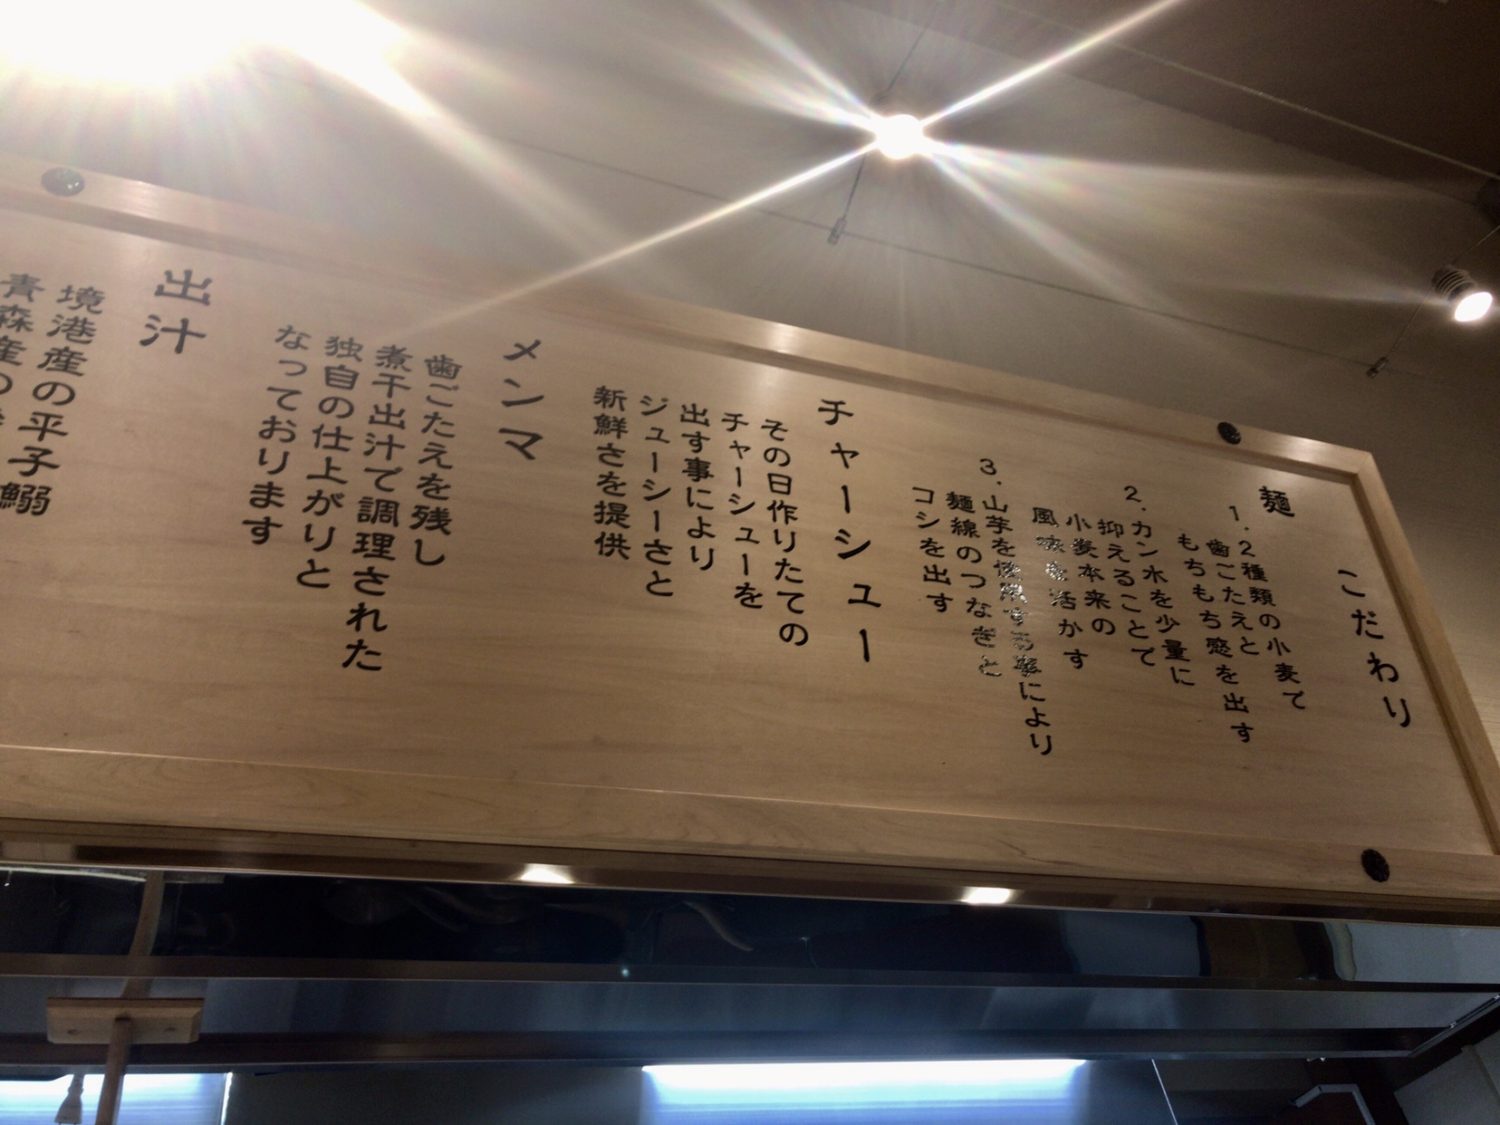 こだわり
麺
1.2種類の小麦で
歯ごたえと
もちもち感を出す
2.カン水を少量に
抑えることで
小麦本来の
風味を活かす
3.山芋を使用する事により
麺線のつなぎと
コシを出す
チャーシュー
その日作りたての
チャーシューを
出す事により
ジューシーさと
新鮮さを提供
メンマ
歯ごたえを残し
煮干出汁で調理された
独自の仕上がりと
なっております
出汁
境港産の平子鰯
青森産の